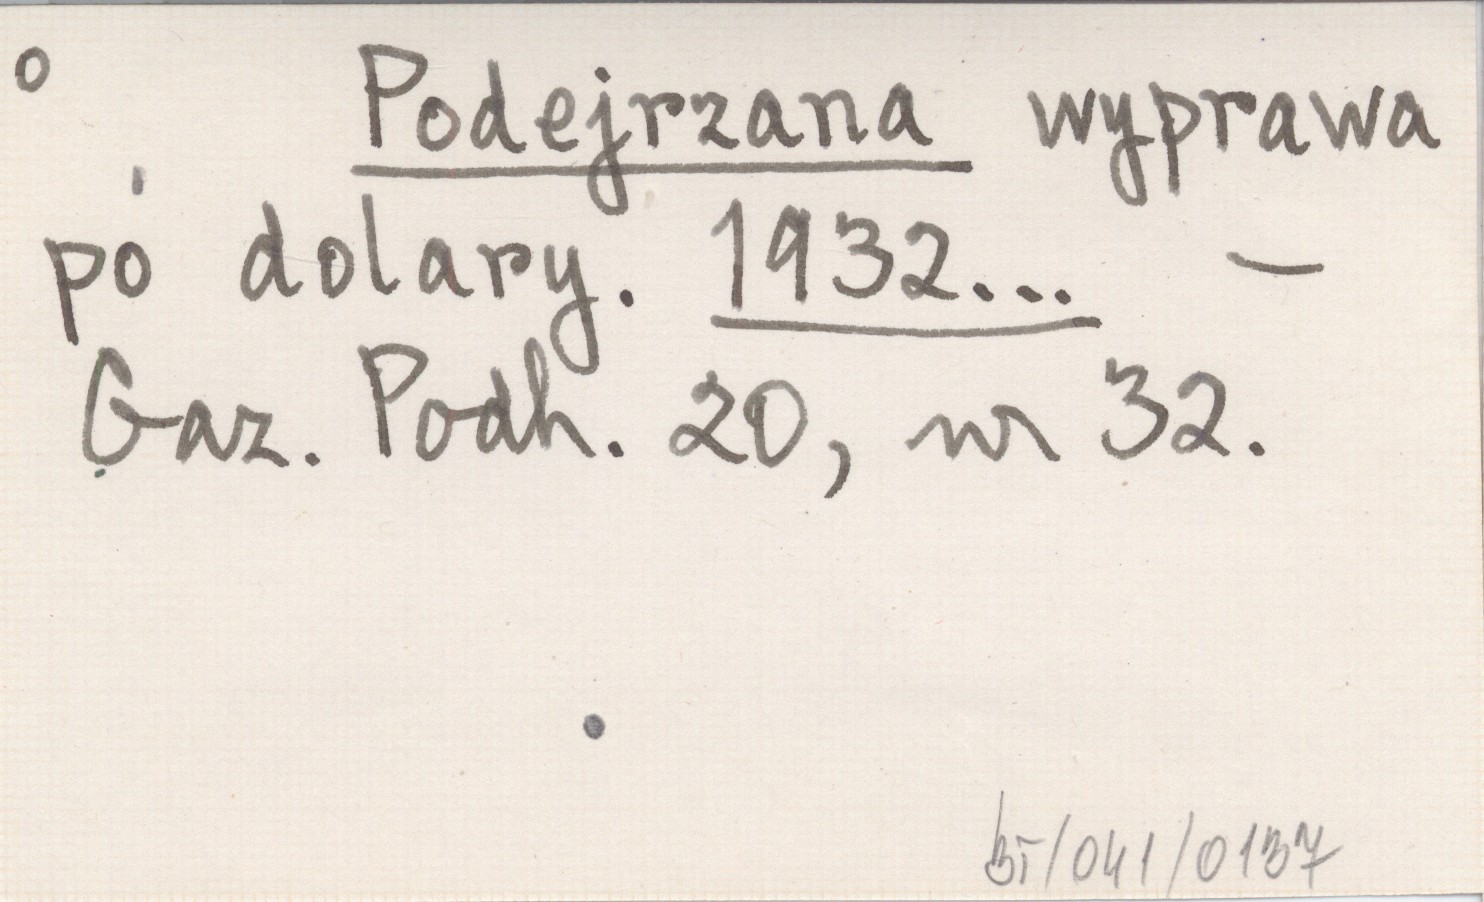 o Podejrzana wyprawa
po dolary. 1932... –
Gaz. Podh. 20, nr 32.
/041/0137